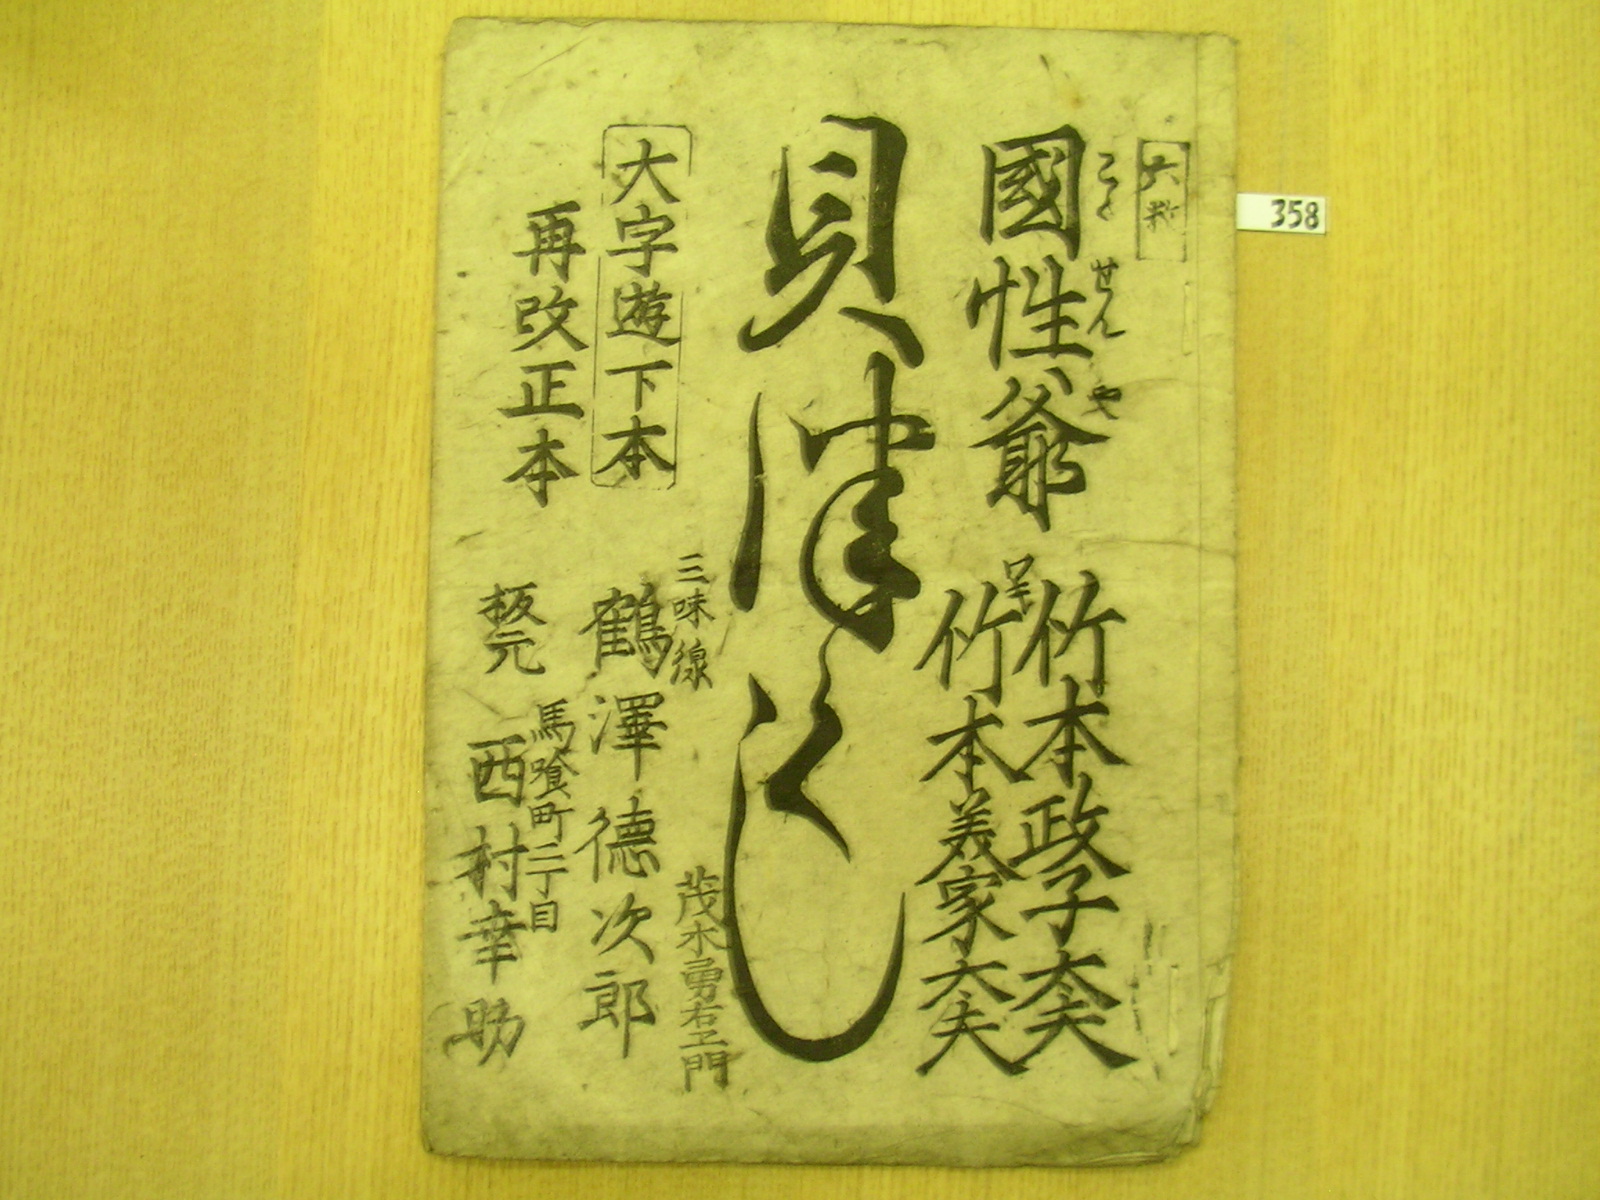 六
358
國性爺
こくせんや
竹本政子太夫
竹本義家太夫
貝津くし
大字遊下本
再改正本
三味線
鶴澤德次郎
茂木勇右エ門
板元
馬喰町二丁目
西村幸助